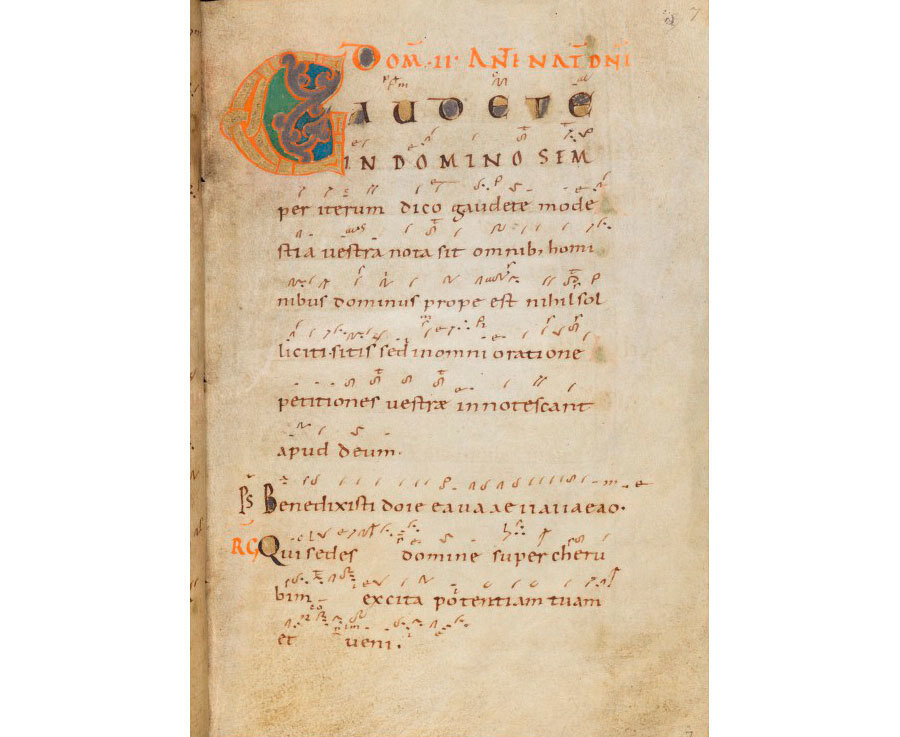 7
DOM̄ · II · ANT̄ NAT̄ DN̄I
GAUDETE
IN DOMINO SEM
per iterum dico gaudete mode
stia vestra nota sit omnib; homi
nibus dominus prope est nihil sol
liciti sitis sed in omni oratione
petitiones vestræ innotescant
apud deum.
Ps Benedixisti dn̄e eaua ae uauaeao.
RG Qui sedes domine super cheru
bim excita potentiam tuam
et veni.